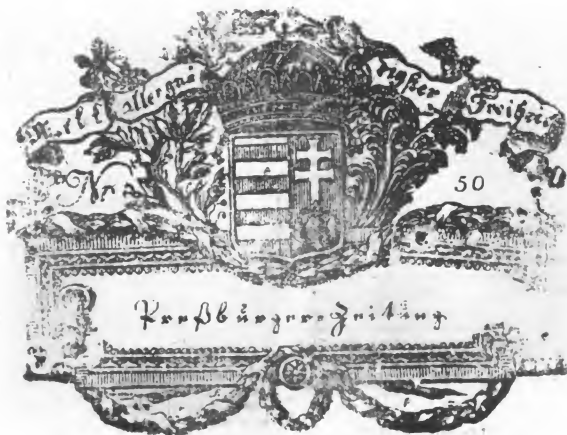 Mit allergnä digster Freiheit
Nr. 50
Preßburger Zeitung